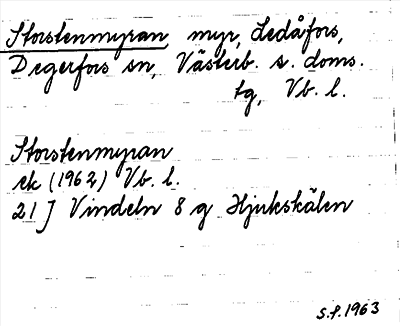 Storstenmyran myr, Ledåfors,
Degerfors sn, Västerb. s. doms.
tg, Vb. l.
Storstenmyran
ek (1962) Vb. l.
21J Vindeln 8 g Hjukskälen
S.P. 1963